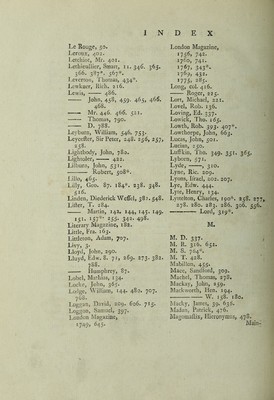 INDEX
Le Rouge, 50.
Leroux, 402.
Lerchior, Mr. 401.
Lethieullier, Smart, 11. 346. 365.
366. 387*. 367*.
Leverous, Thomas, 434*.
Lewkner, Rich. 216.
Lewis, —— 486.
—— John, 458, 459. 465, 466.
466.
—— Mr. 446. 466. 521.
—— Thomas, 790.
—— D. 788.
Leyburn, William, 546. 753.
Leycester, Sir Peter, 248. 256, 257,
258.
Lightbody, John, 780.
Lightoler, —— 422.
Lilburn, John, 531.
—— Robert, 508*.
Lillo, 465.
Lilly, Geo. 87. 184*. 238. 348.
516.
Linden, Diederick Wessel, 381. 548.
Lister, T. 184.
—— Martin, 142, 144, 145. 149.
151. 157* 255. 340. 498.
Literary Magazine, 182.
Little, Fra. 163.
Littleton, Adam, 707.
Livy, 3.
Lloyd, John, 290.
Lhuyd, Edw. 8. 71, 269. 273. 382.
788.
—— Humphrey, 87.
Lobel, Mathias, 134.
Locke, John, 365.
Lodge, William, 144. 482. 707.
788.
Loggan, David, 209. 606. 713.
Loggan, Samuel, 397.
London Magazine,
1749, 643.
London Magazine,
1756, 742.
1760, 741.
1767, 343*.
1769, 432.
1775, 285.
Long, col. 416.
—— Roger, 215.
Lort, Michael, 221.
Lovel, Rob. 136.
Loving, Ed. 337.
Lowick, Tho. 165.
Lowth, Rob. 393. 407*.
Lowthorpe, John, 663.
Lucas, John, 501.
Lucian, 150.
Luffkin, Tho. 349. 351. 365.
Lyborn, 571.
Lyde, —— 510.
Lyne, Ric. 209.
Lyons, Israel, 201. 207.
Lye, Edw. 444.
Lyte, Henry, 134.
Lyttelton, Charles, 190*. 258. 277,
278. 280. 283. 286. 306. 556.
—— Lord, 319*.
M.
M. D. 337.
M. R. 316. 631.
M. S. 764*.
M. T. 428.
Mabillon, 455.
Mace, Sandford, 509.
Machel, Thomas, 278.
Mackay, John, 259.
Mackworth, Hen. 194.
—— W. 158. 180.
Macky, James, 39. 656.
Madan, Patrick, 476.
Magomastix, Hieronymus, 478.
Main-